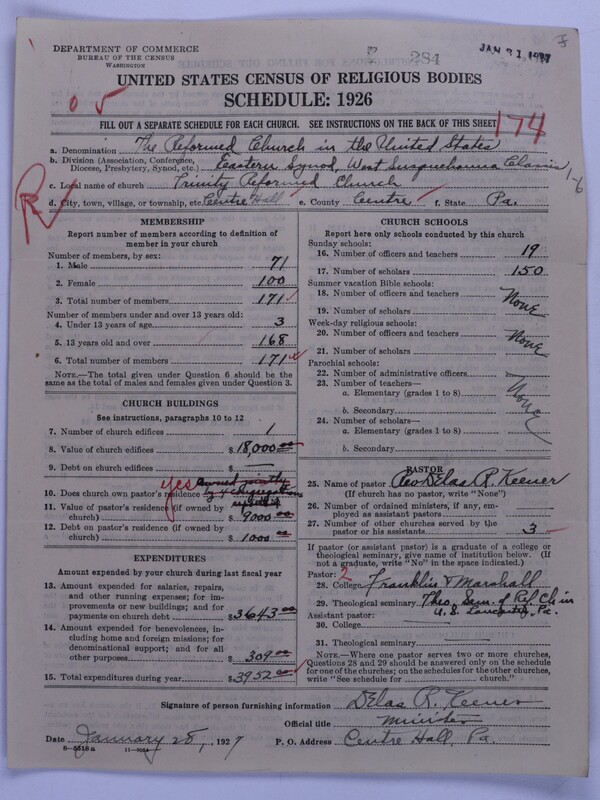 DEPARTMENT OF COMMERCE
BUREAU OF THE CENSUS
WASHINGTON
284
JAN 31 1927
UNITED STATES CENSUS OF RELIGIOUS BODIES
SCHEDULE: 1926
05
FILL OUT A SEPARATE SCHEDULE FOR EACH CHURCH. SEE INSTRUCTIONS ON THE BACK OF THIS SHEET
174
a. Denomination The Reformed Church in the United States
b. Division (Association, Conference, Diocese, Presbytery, Synod, etc.) Eastern Synod, West Susquehanna Classis
1-6
c. Local name of church Trinity Reformed Church
d. City, town, village, or township, etc. Centre Hall e. County Centre f. State Pa.
R
MEMBERSHIP
Report number of members according to definition of member in your church
Number of members, by sex:
1. Male 71
2. Female 100
3. Total number of members 171
Number of members under and over 13 years old:
4. Under 13 years of age 3
5. 13 years old and over 168
6. Total number of members 171
NOTE.—The total given under Question 6 should be the same as the total of males and females given under Question 3.
CHURCH BUILDINGS
See instructions, paragraphs 10 to 12
7. Number of church edifices 1
8. Value of church edifices $18,000.00
9. Debt on church edifices $ —
10. Does church own pastor's residence yes
11. Value of pastor's residence (if owned by church) $9000.00
12. Debt on pastor's residence (if owned by church) $1000.00
EXPENDITURES
Amount expended by your church during last fiscal year
13. Amount expended for salaries, repairs, and other running expenses; for improvements or new buildings; and for payments on church debt $3643.00
14. Amount expended for benevolences, including home and foreign missions; for denominational support; and for all other purposes $309.00
15. Total expenditures during year $3952.00
CHURCH SCHOOLS
Report here only schools conducted by this church
Sunday schools:
16. Number of officers and teachers 19
17. Number of scholars 150
Summer vacation Bible schools:
18. Number of officers and teachers
None
19. Number of scholars
Week-day religious schools:
20. Number of officers and teachers
None
21. Number of scholars
Parochial schools:
22. Number of administrative officers
23. Number of teachers—
a. Elementary (grades 1 to 8)
None
b. Secondary
24. Number of scholars—
a. Elementary (grades 1 to 8)
b. Secondary
PASTOR
25. Name of pastor Rev Delas R. Keener
(If church has no pastor, write "None")
26. Number of ordained ministers, if any, employed as assistant pastors
27. Number of other churches served by the pastor or his assistants 3
If pastor (or assistant pastor) is a graduate of a college or theological seminary, give name of institution below. (If not a graduate, write "No" in the space indicated.)
Pastor: 2
28. College Franklin & Marshall
29. Theological seminary Theo. Sem. of Ref. Ch in U.S. Lancaster, Pa.
Assistant pastor:
30. College
31. Theological seminary
NOTE.—Where one pastor serves two or more churches, Questions 28 and 29 should be answered only on the schedule for one of the churches; on the schedules for the other churches, write "See schedule for church."
Signature of person furnishing information Delas R. Keener
Official title Minister
Date January 28, 1927 P. O. Address Centre Hall, Pa.
8-5518a